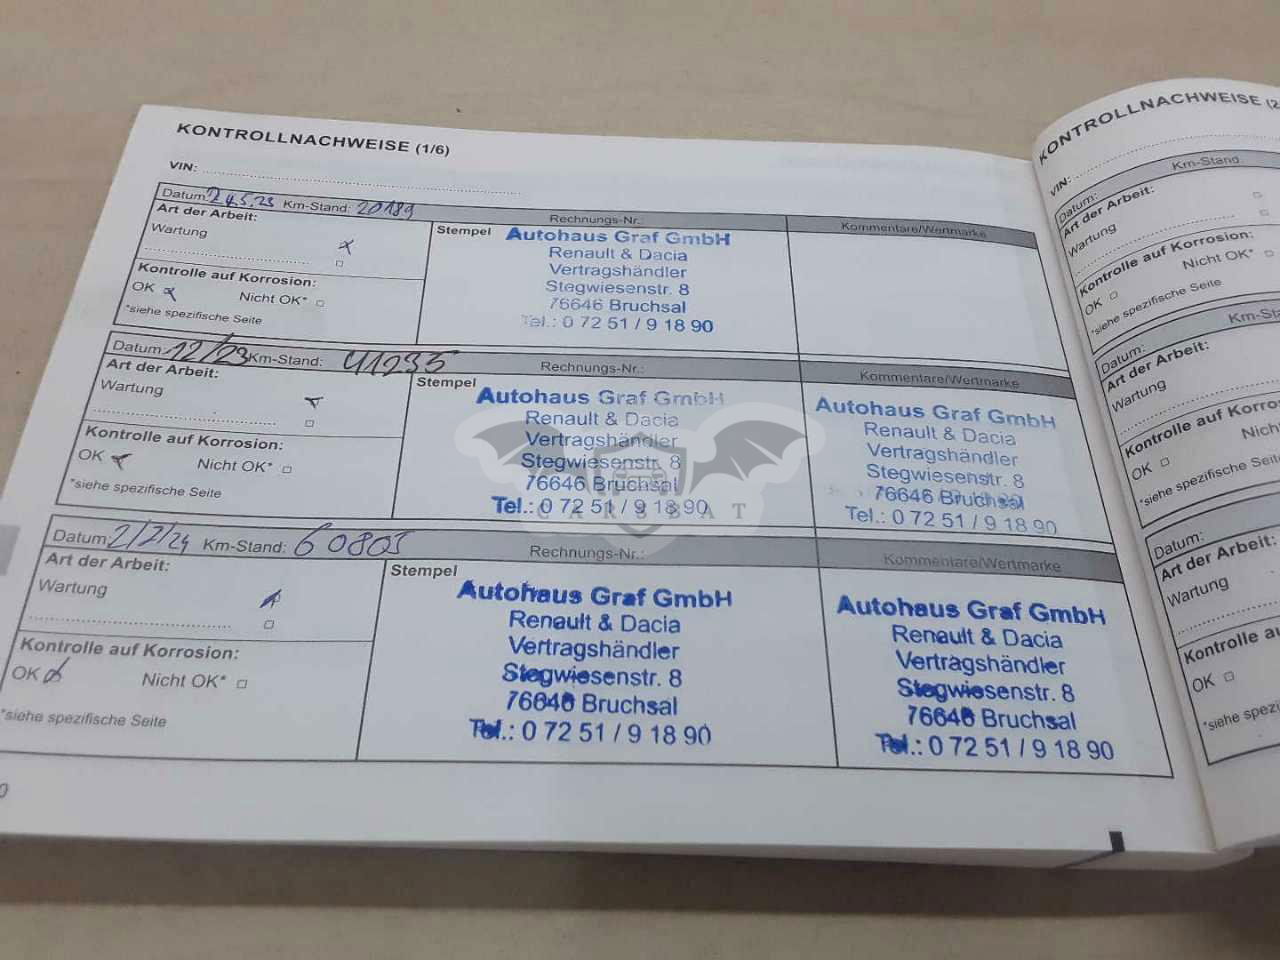 KONTROLLNACHWEISE (1/6)
VIN:
Datum: 24.5.23 Km-Stand: 20189 Rechnungs-Nr.: Kommentare/Wertmarke
Art der Arbeit:
Wartung
Kontrolle auf Korrosion:
OK Nicht OK*
*siehe spezifische Seite
Stempel
Autohaus Graf GmbH
Renault & Dacia
Vertragshändler
Stegwiesenstr. 8
76646 Bruchsal
Tel.: 0 72 51 / 9 18 90
Datum: 12/23 Km-Stand: 41235 Rechnungs-Nr.: Kommentare/Wertmarke
Art der Arbeit:
Wartung
Kontrolle auf Korrosion:
OK Nicht OK*
*siehe spezifische Seite
Stempel
Autohaus Graf GmbH
Renault & Dacia
Vertragshändler
Stegwiesenstr. 8
76646 Bruchsal
Tel.: 0 72 51 / 9 18 90
Autohaus Graf GmbH
Renault & Dacia
Vertragshändler
Stegwiesenstr. 8
76646 Bruchsal
Tel.: 0 72 51 / 9 18 90
CARSBAT
Datum: 2/7/24 Km-Stand: 60805 Rechnungs-Nr.: Kommentare/Wertmarke
Art der Arbeit:
Wartung
Kontrolle auf Korrosion:
OK Nicht OK*
*siehe spezifische Seite
Stempel
Autohaus Graf GmbH
Renault & Dacia
Vertragshändler
Stegwiesenstr. 8
76646 Bruchsal
Tel.: 0 72 51 / 9 18 90
Autohaus Graf GmbH
Renault & Dacia
Vertragshändler
Stegwiesenstr. 8
76646 Bruchsal
Tel.: 0 72 51 / 9 18 90
KONTROLLNACHWEISE (2
VIN:
Datum: Km-Stand:
Art der Arbeit:
Wartung
Kontrolle auf Korrosion:
OK Nicht OK*
*siehe spezifische Seite
Datum:
Art der Arbeit:
Wartung
OK
*siehe spezifische Seite
Datum:
Art der Arbeit:
Wartung
OK